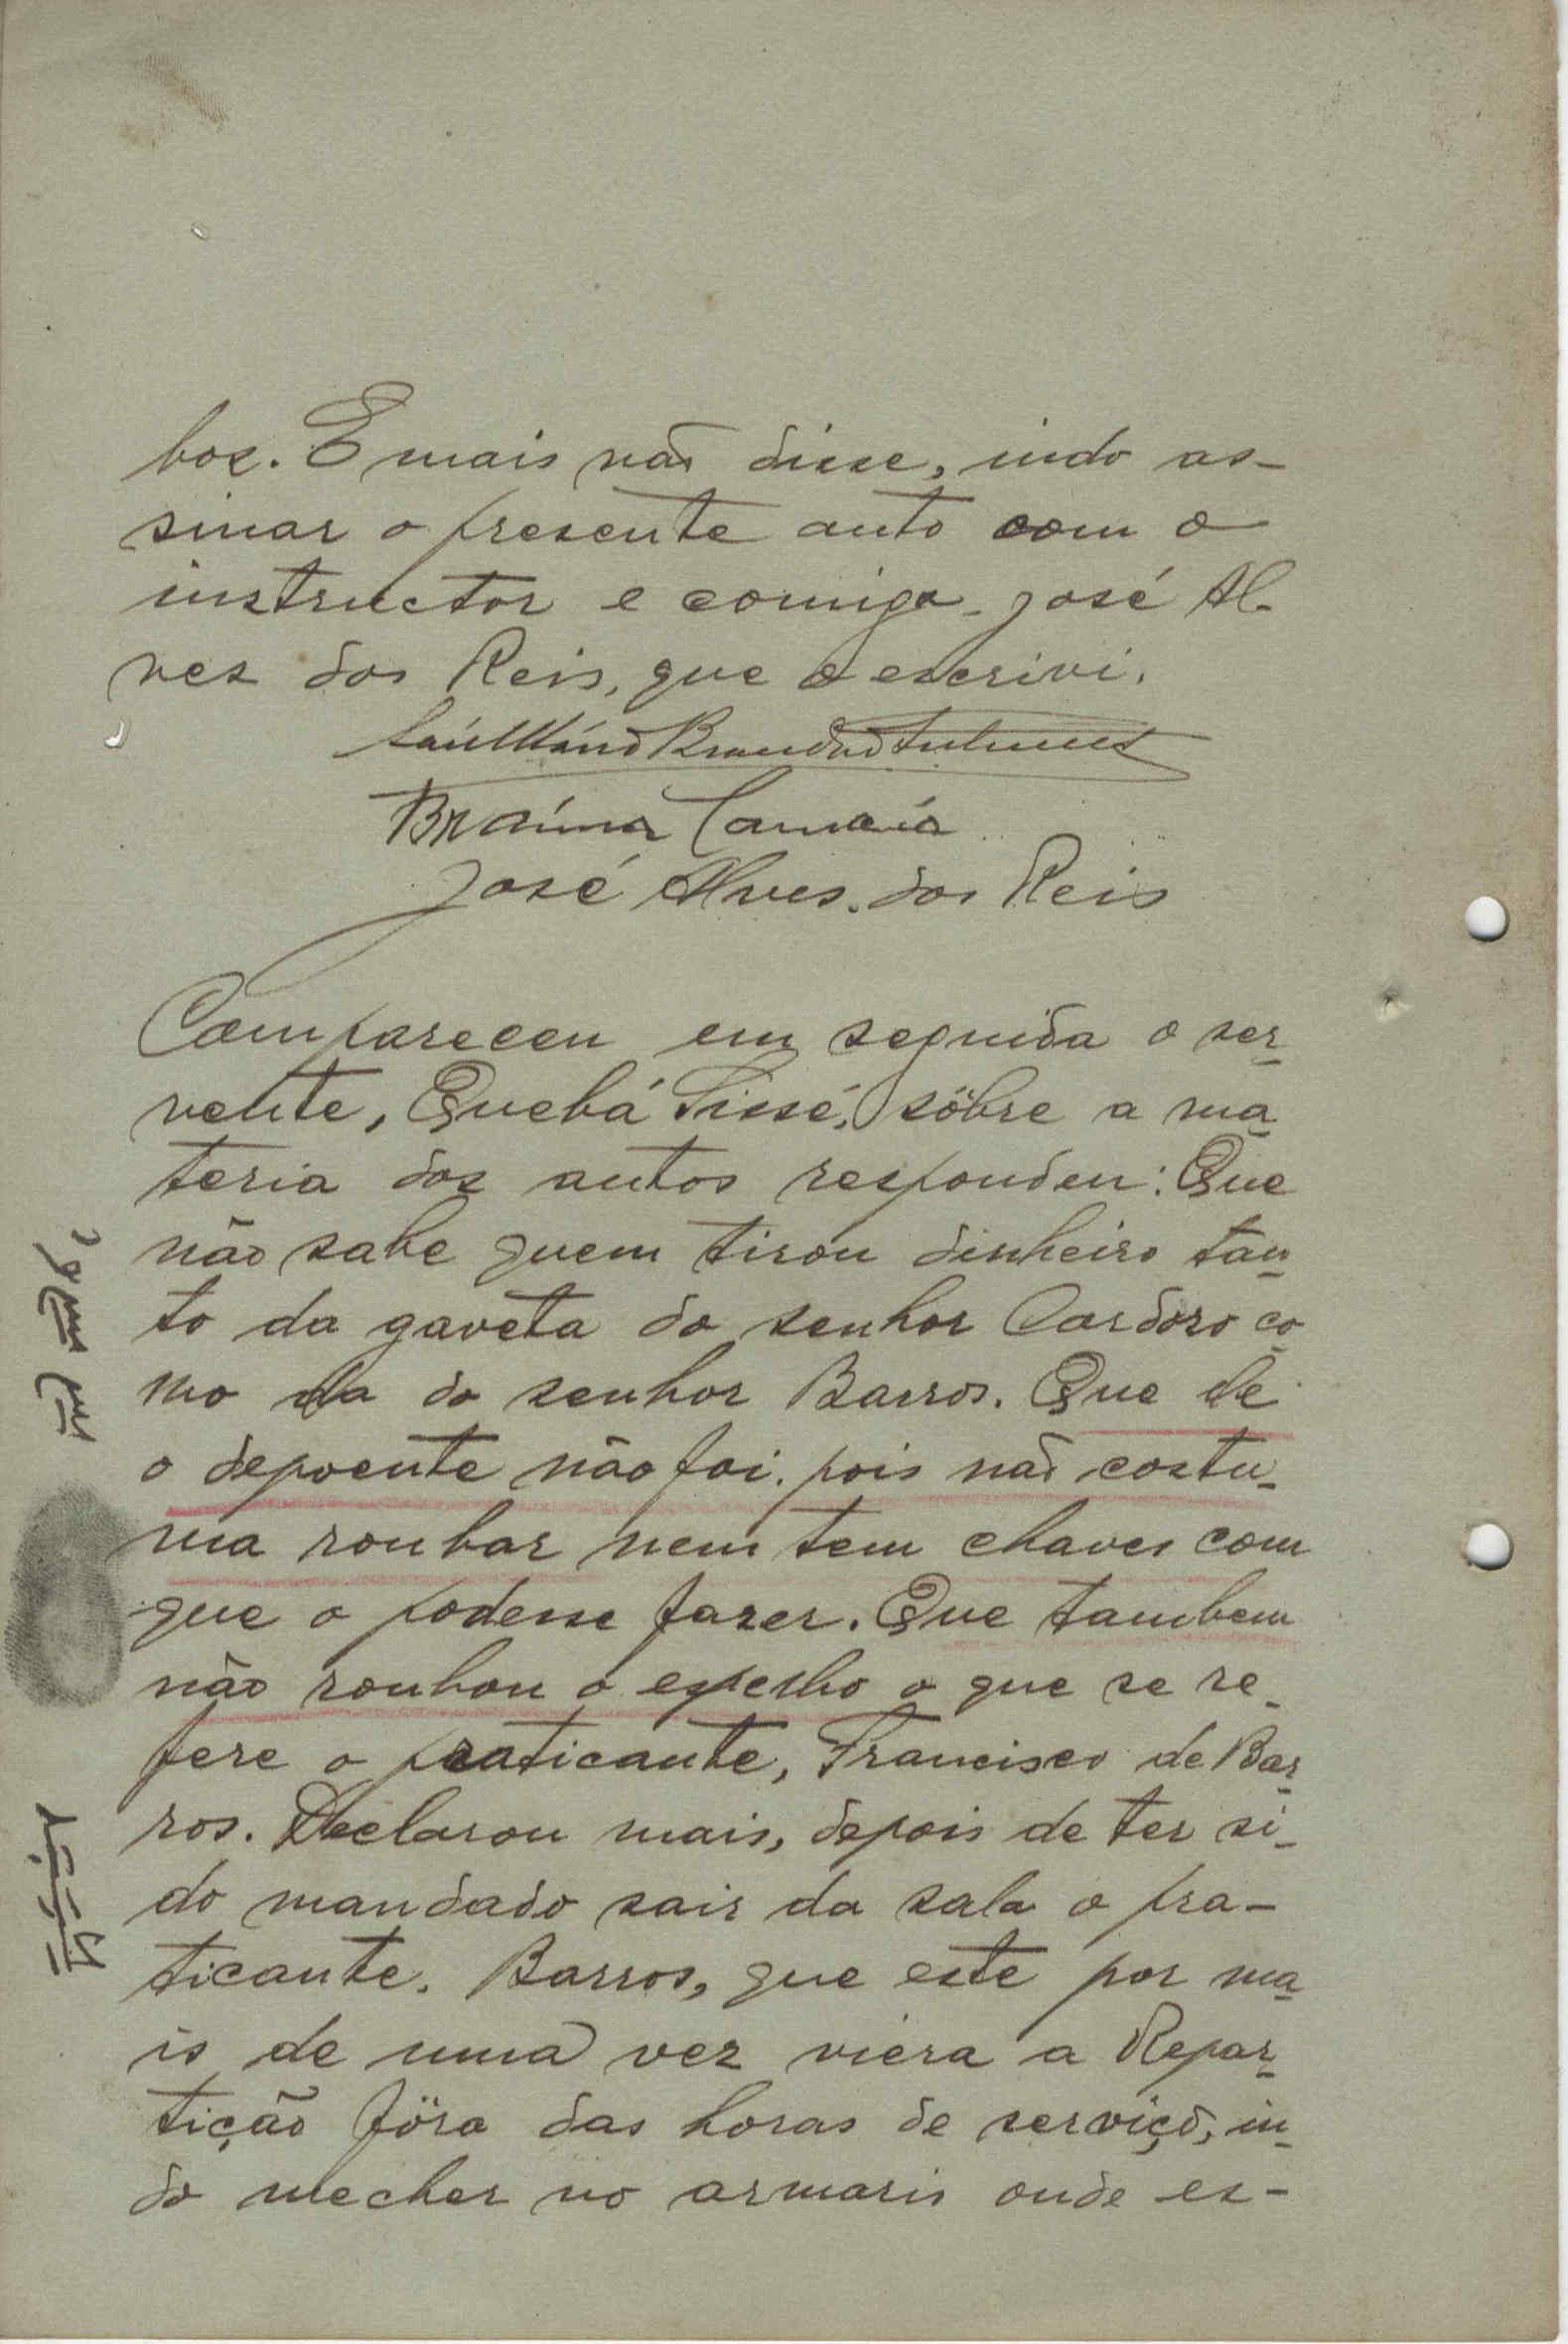 bos. E mais não disse, indo as-
sinar o presente auto com o
instructor e comigo José Al-
ves dos Reis, que o escrivi.
Brandão Antunes
José Alves dos Reis
Compareceu em seguida o ser-
vente, Quebá Sissé, sôbre a ma-
teria dos autos respondeu: Que
não sabe quem tirou dinheiro tan-
to da gaveta do senhor Cardoso co-
mo da do senhor Barros. Que ele
o depoente não foi. pois não costu-
ma roubar nem tem chaves com
que o podesse fazer. Que tambem
não roubou o espelho a que se re-
fere o praticante, Francisco de Bar-
ros. Declarou mais, depois de ter si-
do mandado sair da sala o pra-
ticante. Barros, que este por ma-
is de uma vez viera a Repar-
tição fóra das horas de serviço, in-
do mecher no armario onde es-